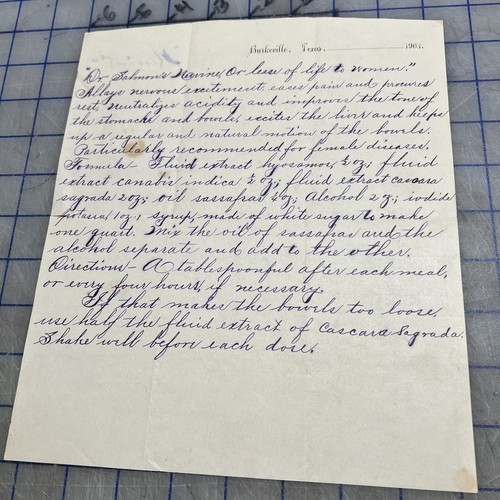 Burkeville, Texas, 190
"Dr Salmon's Nervine, Or lease of life to women."
Allays nervous excitement, eases pain and procures
rest, Neutralizes acidity and improves the tone of
the stomache and bowels, excites the livr and keeps
up a regular and natural motion of the bowels.
Particularly recommended for female diseases.
Formula – Fluid extract hyosamos, ½ oz; fluid
extract canabis indica ½ oz; fluid extract cascara
sagrada 2 oz; oil sassafras ½ oz; Alcohol 2 oz; iodide
potasia, 1 oz; syrup, made of white sugar to make
one quart. Mix the oil of sassafras and the
alcohol separate and add to the other.
Directions – A tablespoonful after each meal,
or every four hours, if necessary.
If that makes the bowels too loose,
use half the fluid extract of Cascara Sagrada.
Shake well before each dose.